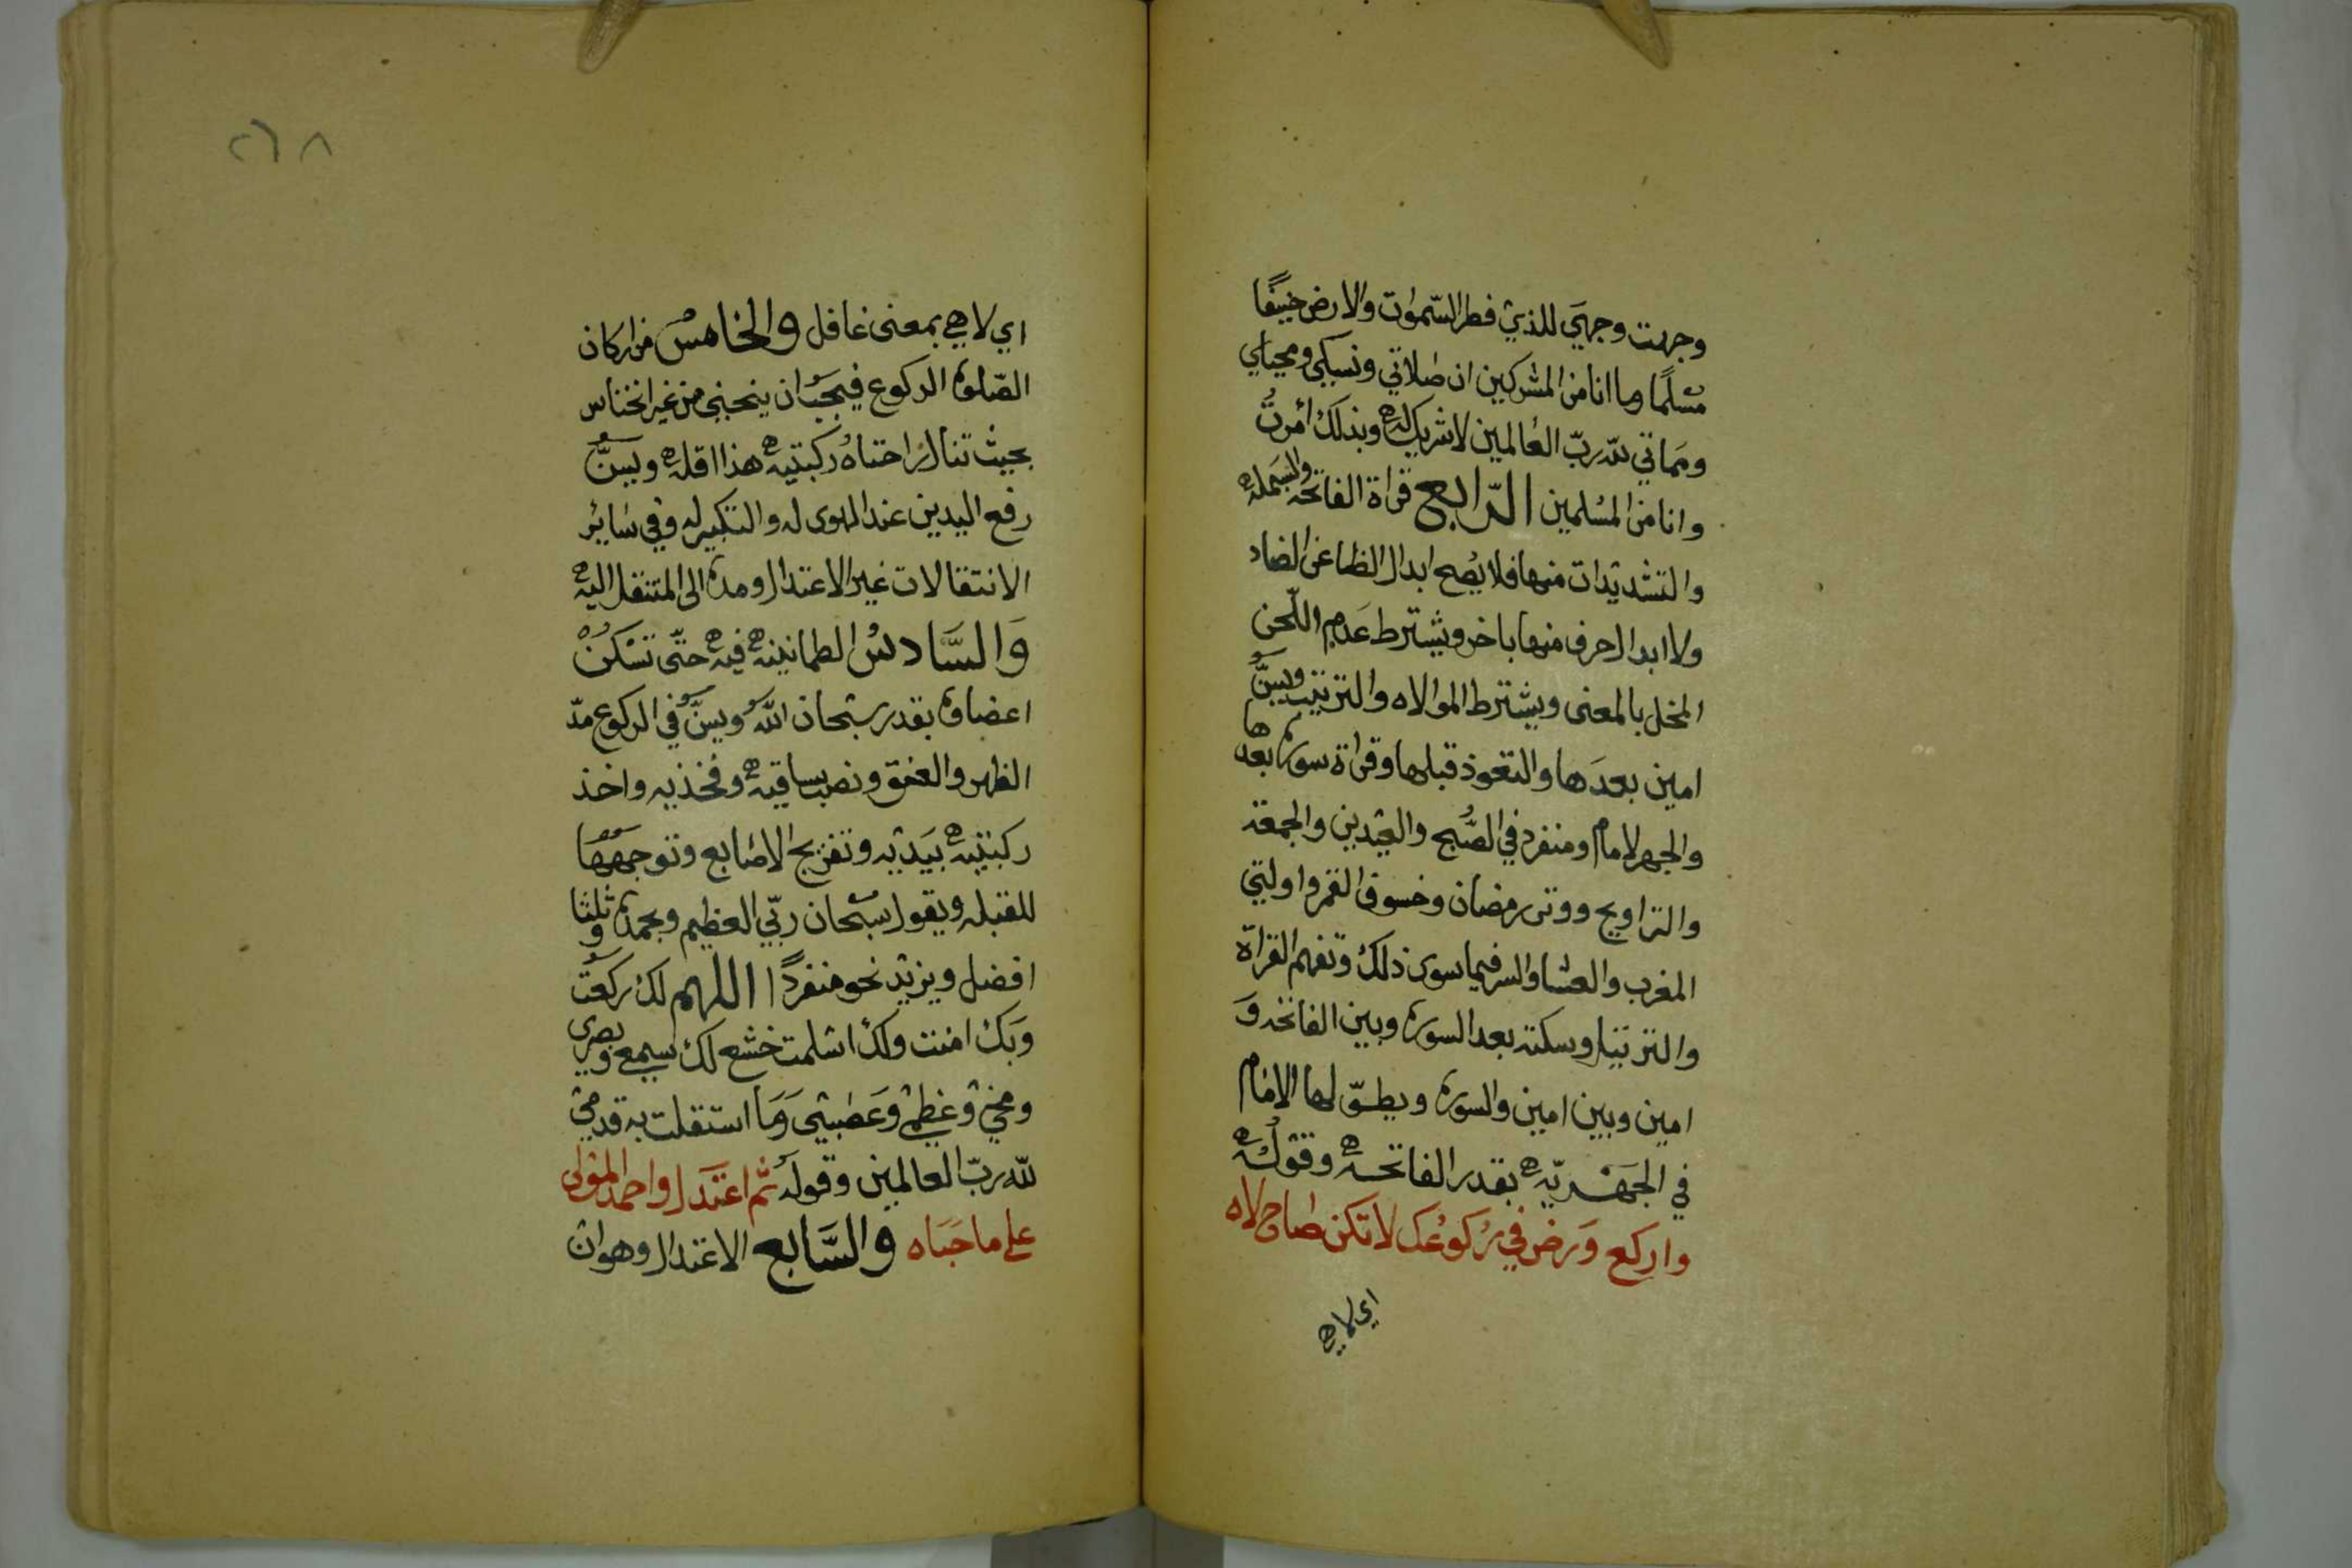 وجهت وجهي للذي فطر السموات والارض حنيفا
مسلما وما انا من المشركين ان صلاتي ونسكي ومحياي
ومماتي لله رب العالمين لا شريك له وبذلك أمرت
وانا من المسلمين الرابع قراة الفاتحه والبسمله
والتشديدات منها فلا يصح ابدال الظا عن الضاد
ولا ابدال حرف منها باخر ويشترط عدم اللحن
المخل بالمعنى ويشترط الموالاه والترتيب ويسن
امين بعدها والتعوذ قبلها وقراة سورة بعدها
والجهر لامام ومنفرد في الصبح والعيدين والجمعة
والتراويح ووتر رمضان وخسوف القمر واولتي
المغرب والعشا والسر فيما سوى ذلك وتفهم القراة
والترتيل وسكتة بعد السورة وبين الفاتحة و
امين وبين امين والسورة ويطول لها الامام
في الجهرية بقدر الفاتحه وقوله
واركع ورض في ركوعك لا تكن صاح لاه
اي لاهي
٢٦٨
اي لاهي بمعنى غافل والخامس من اركان
الصلوة الركوع فيجب ان ينحني من غير انخناس
بحيث تنال راحتاه ركبتيه هذا اقله ويسن
رفع اليدين عند الهوى له والتكبير له وفي سائر
الانتقالات غير الاعتدال ومده الى المنتقل اليه
والسادس الطمانينه فيه حتى تسكن
اعضاوه بقدر سبحان الله ويسن في الركوع مد
الظهر والعنق ونصب ساقيه وفخذيه واخذ
ركبتيه بيديه وتفريج الاصابع وتوجهها
للقبله ويقول سبحان ربي العظيم وبحمده ثلثا و
افضل ويزيد نحو منفردا اللهم لك ركعت
وبك امنت ولك اسلمت خشع لك سمعي وبصري
ومخي وعظمي وعصبي وما استقلت به قدمي
لله رب العالمين وقوله ثم اعتدل واحمد المولى
على ما حباه والسابع الاعتدال وهو ان